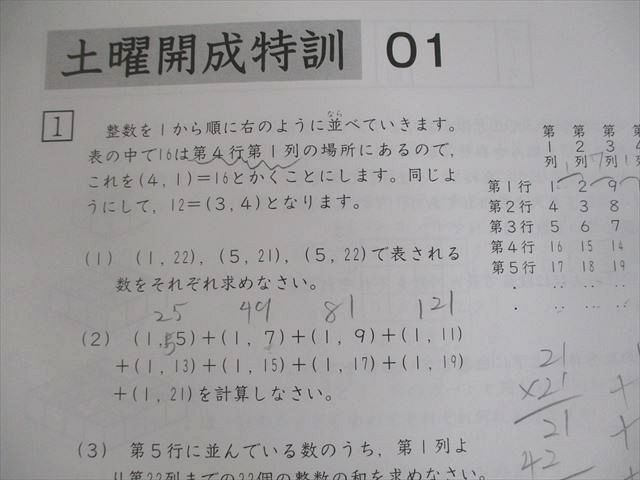 土曜開成特訓 01
1
整数を1から順に右のように並べていきます。
なら
表の中で16は第4行第1列の場所にあるので,
これを(4, 1)=16とかくことにします。同じよ
うにして, 12=(3, 4)となります。
第1列 第2列 第3列 第4
第1行 1 2 9
第2行 4 3 8
第3行 5 6 7
第4行 16 15 14
第5行 17 18 19
(1) (1, 22), (5, 21), (5, 22)で表される
数をそれぞれ求めなさい。
25 49 81 121
(2) (1, 5)+(1, 7)+(1, 9)+(1, 11)
+(1, 13)+(1, 15)+(1, 17)+(1, 19)
+(1, 21)を計算しなさい。
21
×21
21
42
(3) 第5行に並んでいる数のうち, 第1列よ
り第22列までの22個の整数の和を求めなさい。